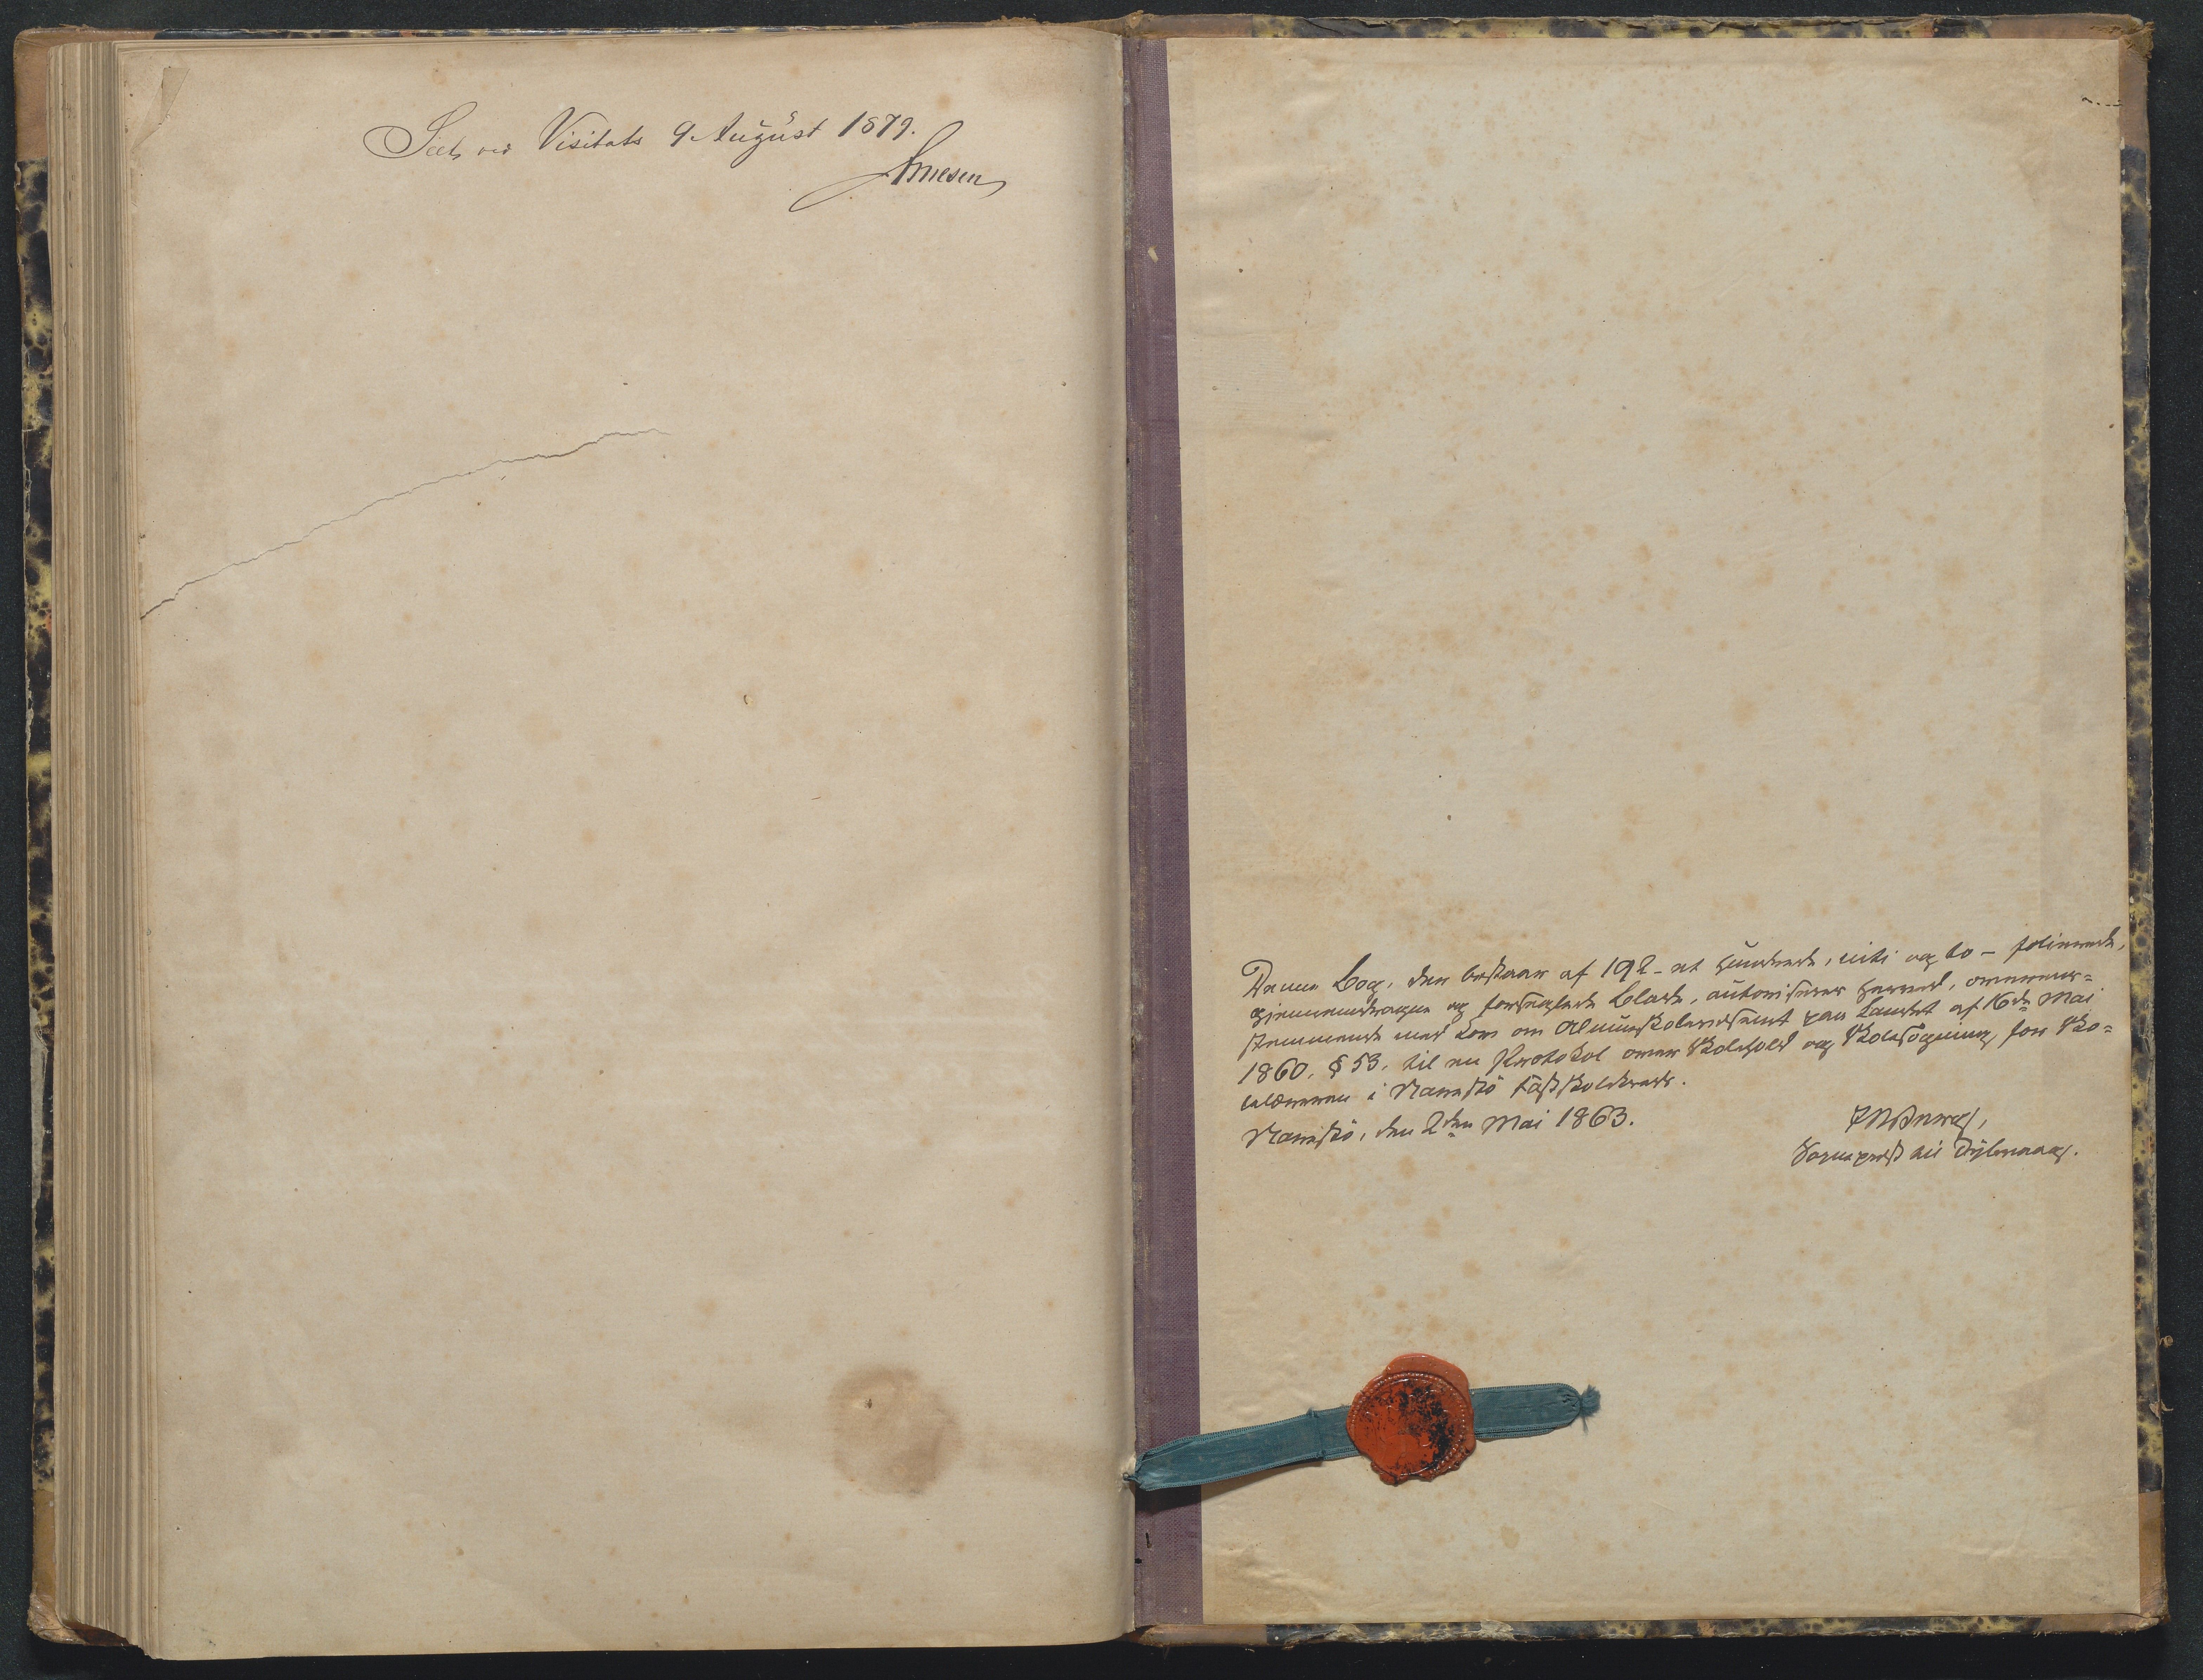 Seet ved Visitats 9 August 1879.
Denne Bog, der bestaaer af 192 - et hundrede, niti og to - folierede,
gjennemdragne og forseglede Blade, autoriseres herved, overeens=
stemmende med Lov om Almueskolevæsenet paa Landet af 16de Mai
1860, § 53, til en Protokol over Skolehold og Skolesøgning for Sko=
i Narestø Fastskolekreds.
Narestø, den 2den Mai 1863.
Sognepræst til Dybvaag.